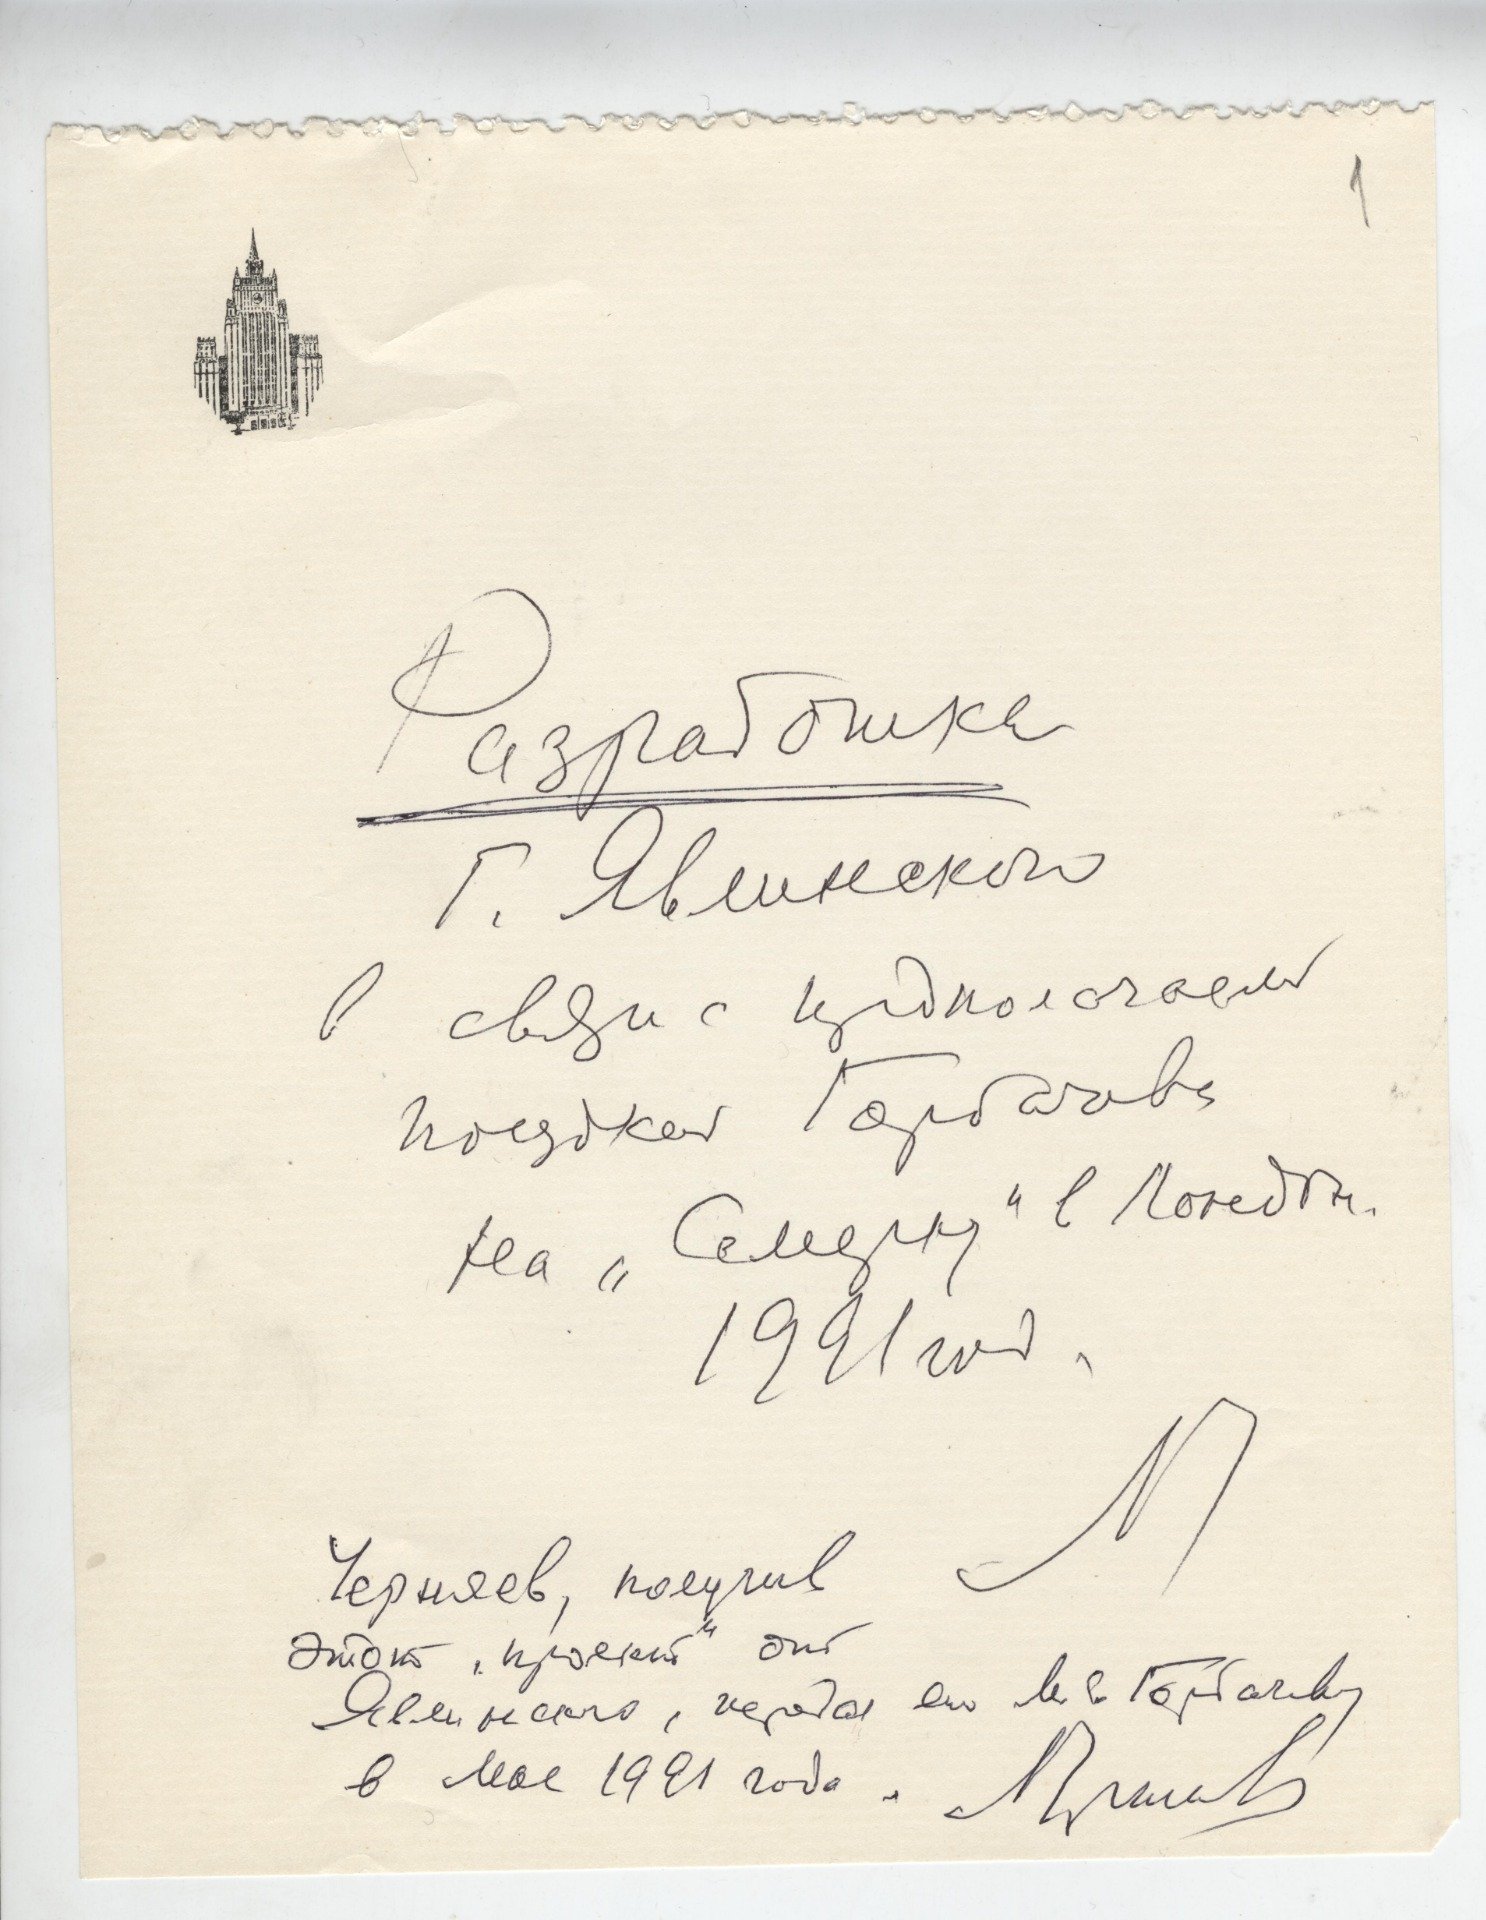 1
Разработка
Г. Явлинского
в связи с предполагаем
поездкой Горбачева
на „Семерку" в Лондон.
1991 год.
Черняев, получив
этот „проект" от
Явлинского, передал его М.С. Горбачеву
в мае 1991 года.